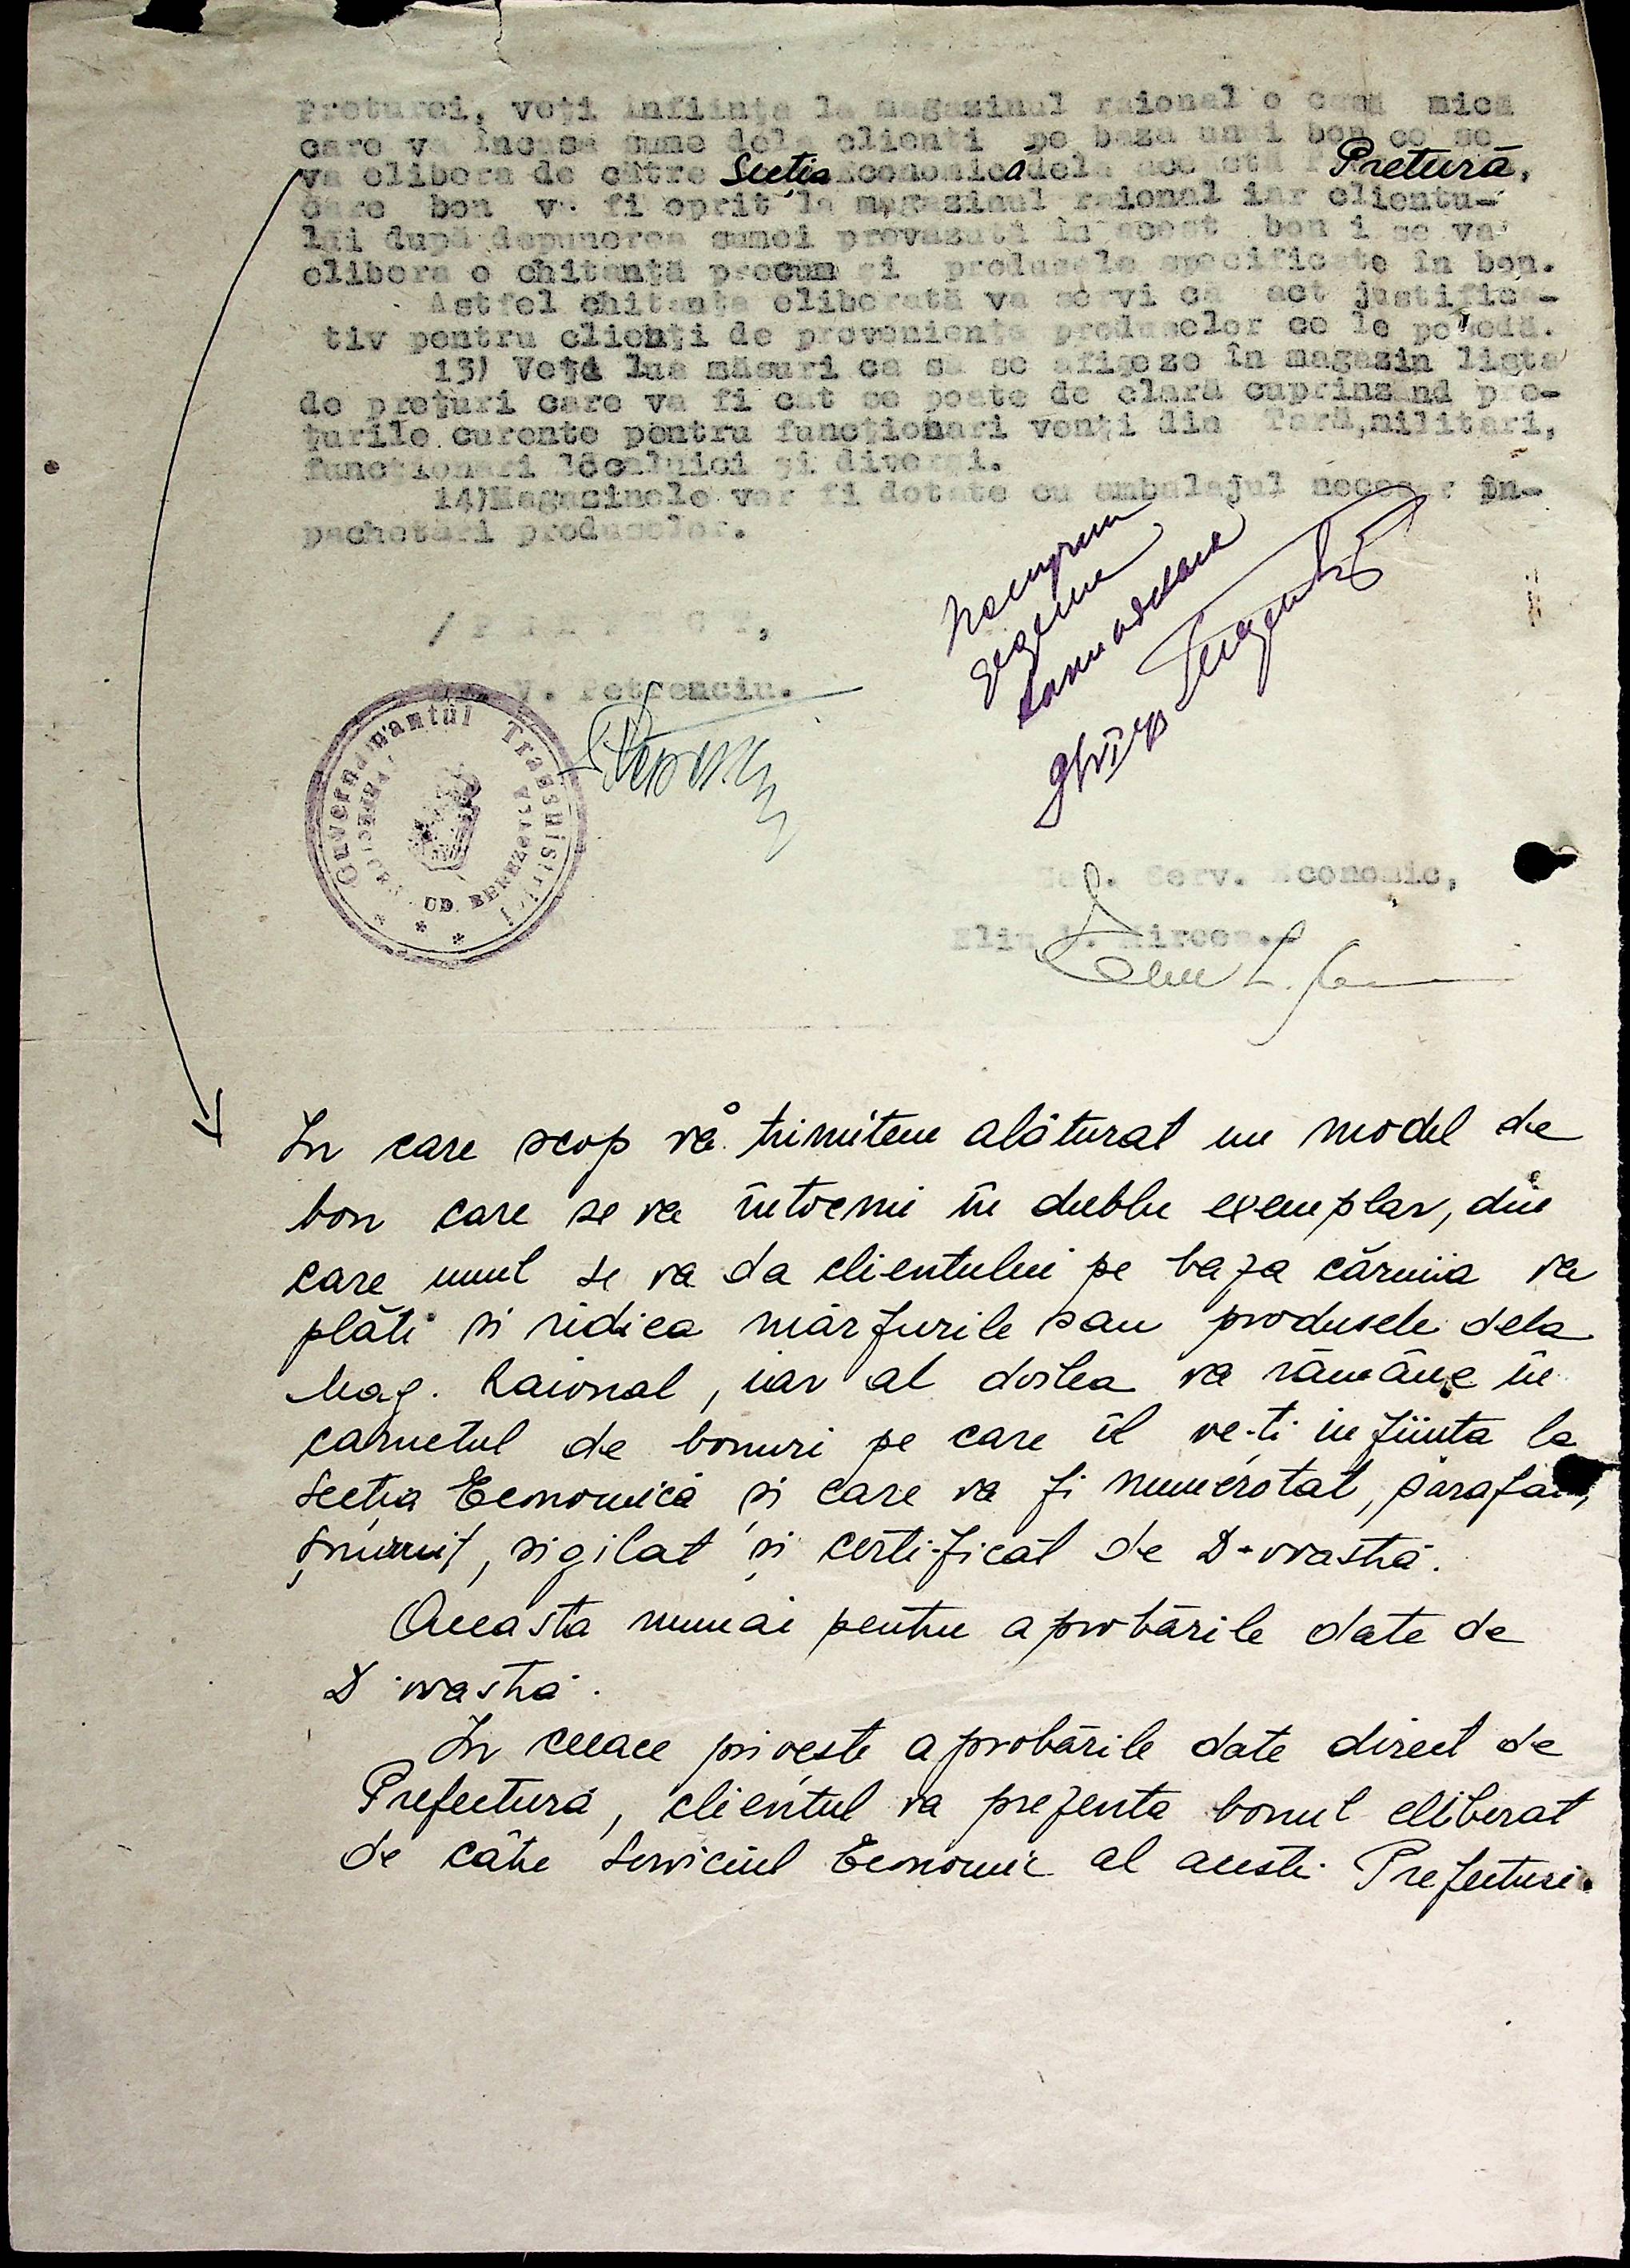 Preturei, veți înființa la magazinul raional o casă mică
care va încasa sume dela clienți pe baza unui bon ce se
va elibera de către Secția Economică dela această Pretură,
care bon va fi oprit la magazinul raional iar clientu-
lui după depunerea sumei prevazută în acest bon i se va
elibera o chitanță precum și produsele specificate în bon.
Astfel chitanța eliberată va servi ca act justifica-
tiv pentru clienți de proveniența produselor ce le posedă.
13) Veți lua măsuri ca să se afișeze în magazin lista
de prețuri care va fi cat se poate de clară cuprinzand pre-
țurile curente pentru funcționari veniți din Tară, militari,
funcționari localnici și diverși.
14) Magazinele vor fi dotate cu ambalajul necesar în-
pachetări produselor.
/ P R E F E C T,
V. Petrenciu.
Guvernamantul Transnistriei
JUD. BEREZOVCA
Serv. Economic,
Mircea.
In care scop vă trimitem alăturat un model de
bon care se va întocmi în dublu exemplar, din
care unul se va da clientului pe baza căruia va
plăti si ridica mărfurile sau produsele dela
Mag. Raional, iar al doilea va rămâne în
carnetul de bonuri pe care îl ve-ti infiinta la
Secția Economică și care va fi numerotat, parafat,
șnuruit, sigilat și certificat de D-voastră.
Aceasta numai pentru aprobările date de
D-voastră.
In ceeace privește aprobările date direct de
Prefectură, clientul va prezenta bonul eliberat
de către Serviciul Economic al acestei Prefecturi.